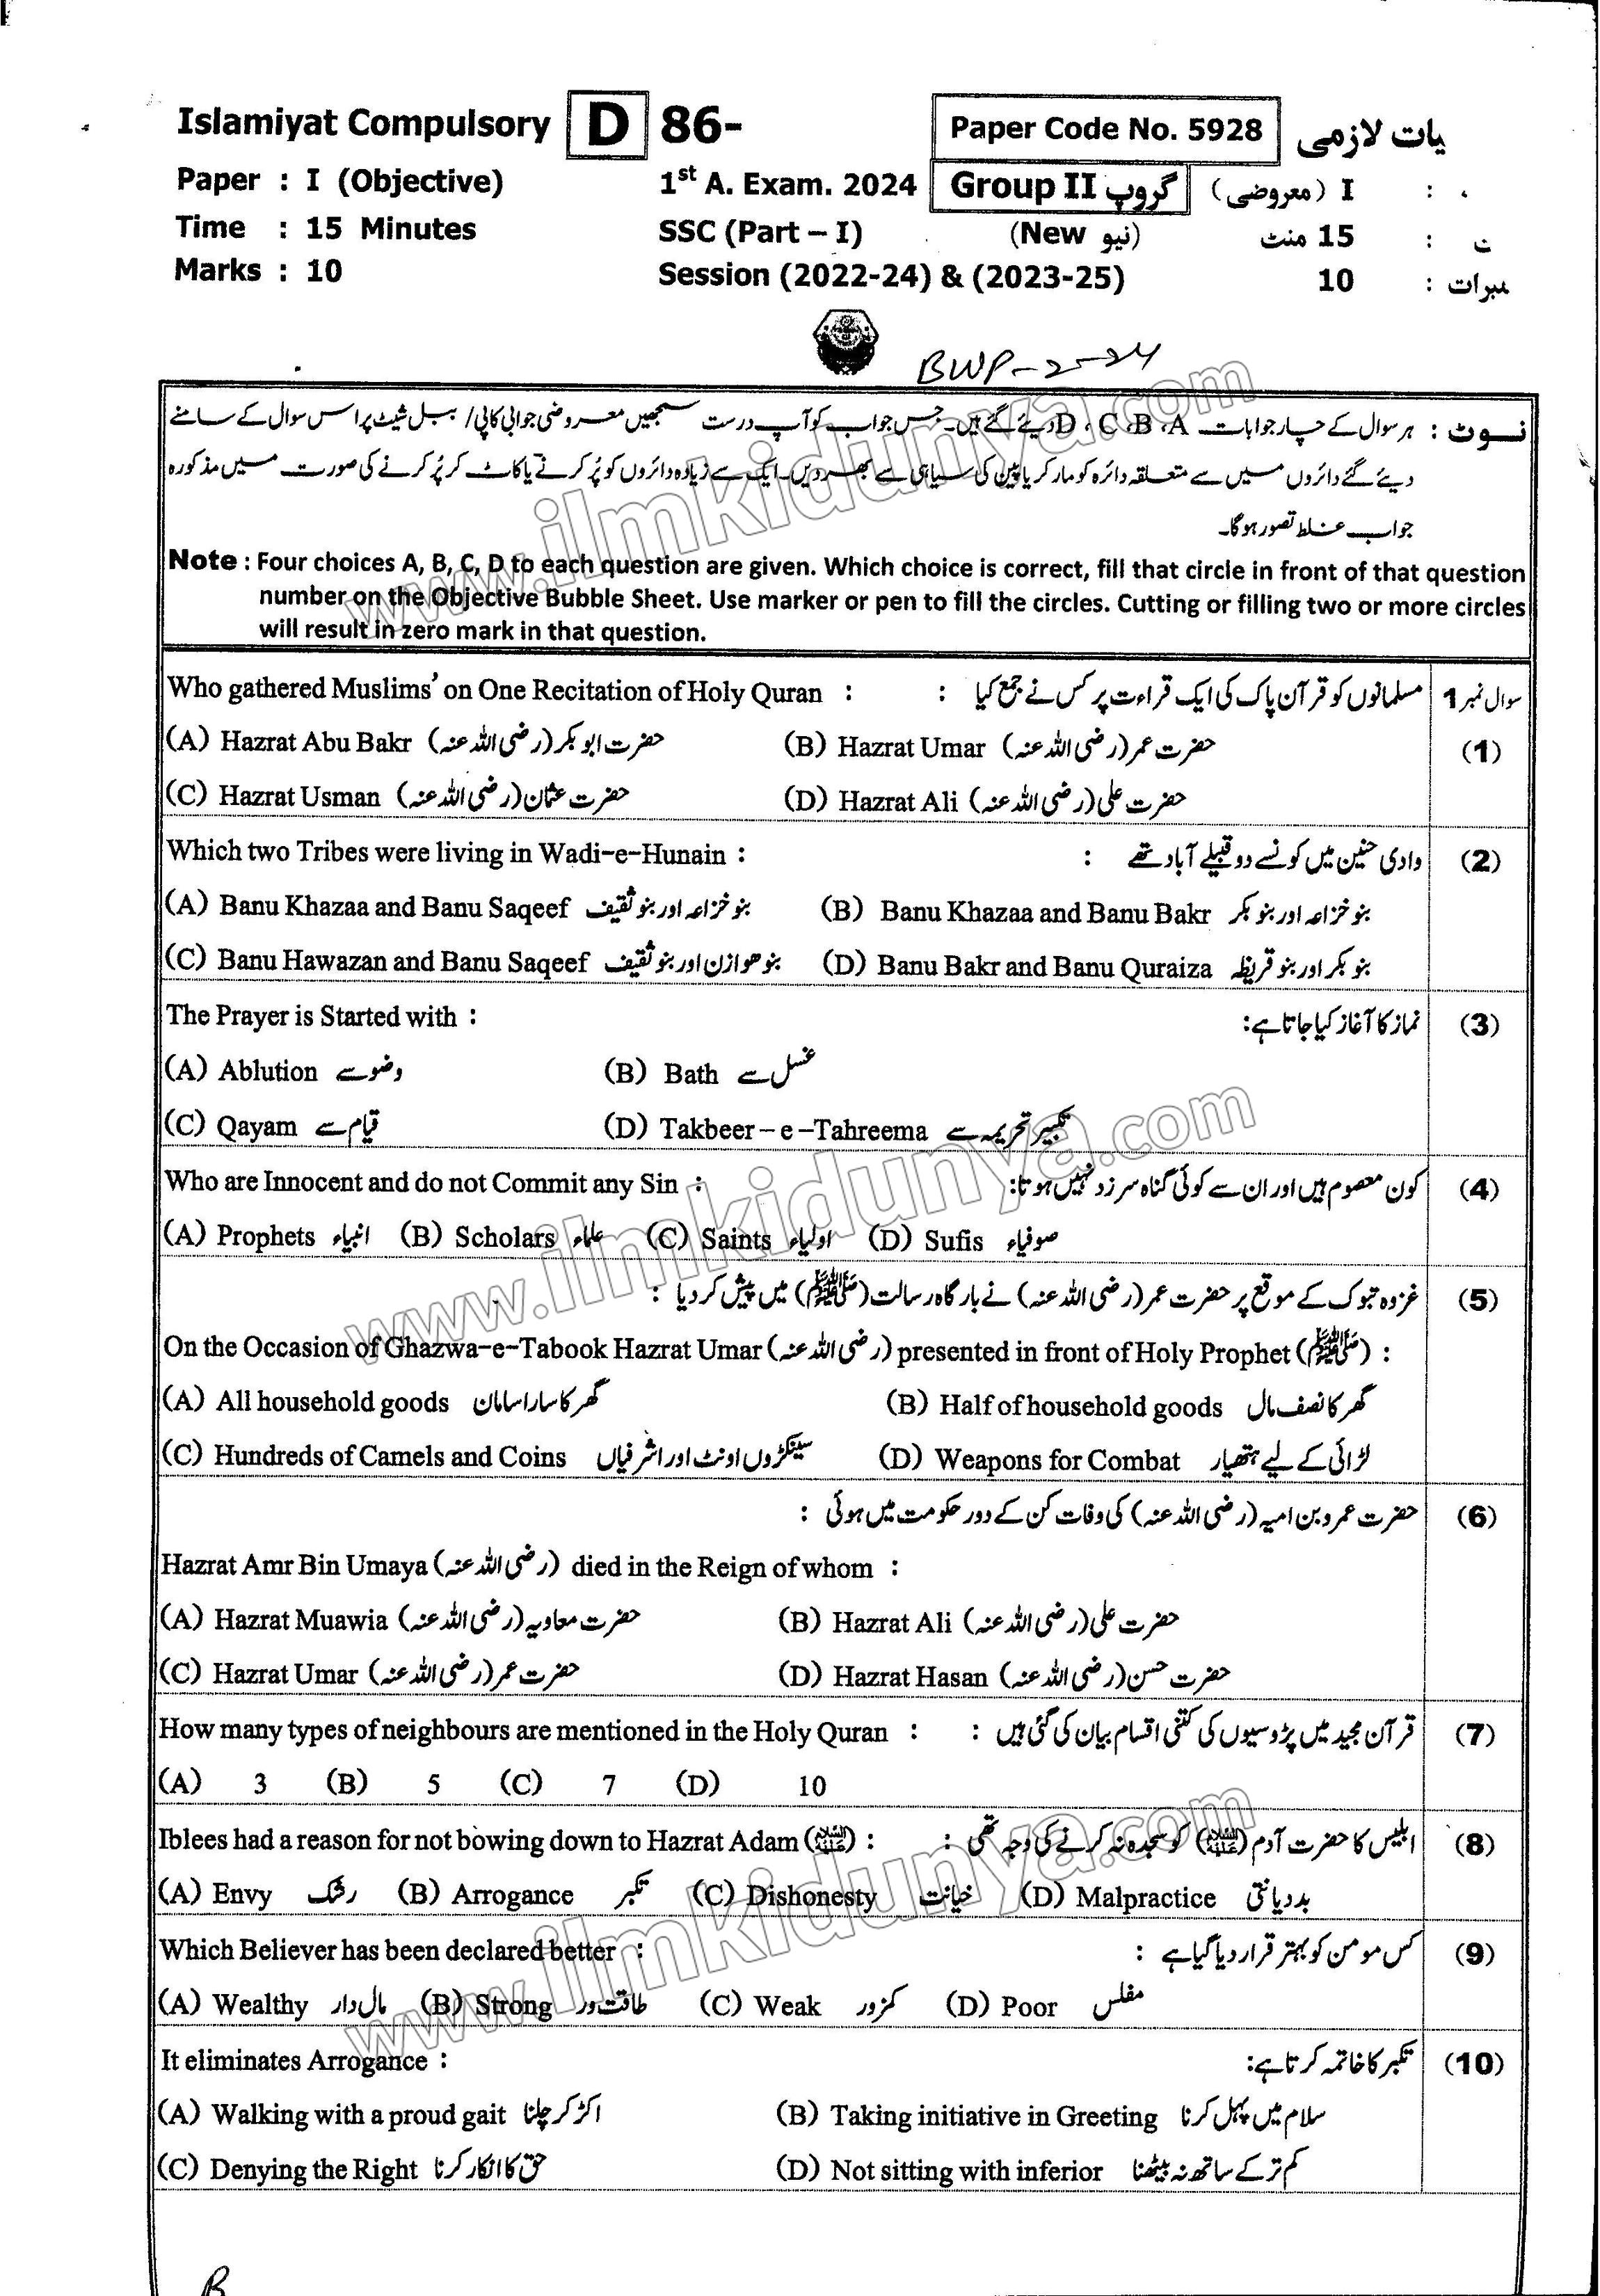 Islamiyat Compulsory D 86- Paper Code No. 5928 یات لازمی
Paper : I (Objective) 1st A. Exam. 2024 Group II گروپ I (معروضی) :
Time : 15 Minutes SSC (Part – I) (New نیو) 15 منٹ : ت
Marks : 10 Session (2022-24) & (2023-25) 10 : مبرات
BWP-2-24
نوٹ : ہر سوال کے چار جوابات A، B، C، D دیئے گئے ہیں۔ جس جواب کو آپ درست سمجھیں معروضی جوابی کاپی/ ببل شیٹ پر اس سوال کے سامنے
دیئے گئے دائروں میں سے متعلقہ دائرہ کو مارکر یا پین کی سیاہی سے بھر دیں۔ ایک سے زیادہ دائروں کو پُر کرنے یا کاٹ کر پُر کرنے کی صورت میں مذکورہ
جواب غلط تصور ہوگا۔
Note : Four choices A, B, C, D to each question are given. Which choice is correct, fill that circle in front of that question
number on the Objective Bubble Sheet. Use marker or pen to fill the circles. Cutting or filling two or more circles
will result in zero mark in that question.
Who gathered Muslims’ on One Recitation of Holy Quran : : مسلمانوں کو قرآن پاک کی ایک قراءت پر کس نے جمع کیا سوال نمبر 1
(A) Hazrat Abu Bakr حضرت ابو بکر (رضی اللہ عنہ) (B) Hazrat Umar حضرت عمر (رضی اللہ عنہ) (1)
(C) Hazrat Usman حضرت عثمان (رضی اللہ عنہ) (D) Hazrat Ali حضرت علی (رضی اللہ عنہ)
Which two Tribes were living in Wadi-e-Hunain : : وادی حنین میں کونسے دو قبیلے آباد تھے (2)
(A) Banu Khazaa and Banu Saqeef بنو خزاعہ اور بنو ثقیف (B) Banu Khazaa and Banu Bakr بنو خزاعہ اور بنو بکر
(C) Banu Hawazan and Banu Saqeef بنو ھوازن اور بنو ثقیف (D) Banu Bakr and Banu Quraiza بنو بکر اور بنو قریظہ
The Prayer is Started with : نماز کا آغاز کیا جاتا ہے: (3)
(A) Ablution وضو سے (B) Bath غسل سے
(C) Qayam قیام سے (D) Takbeer – e – Tahreema تکبیر تحریمہ سے
Who are Innocent and do not Commit any Sin : کون معصوم ہیں اور ان سے کوئی گناہ سرزد نہیں ہوتا: (4)
(A) Prophets انبیاء (B) Scholars علماء (C) Saints اولیاء (D) Sufis صوفیاء
غزوہ تبوک کے موقع پر حضرت عمر (رضی اللہ عنہ) نے بارگاہ رسالت (ﷺ) میں پیش کر دیا : (5)
On the Occasion of Ghazwa-e-Tabook Hazrat Umar (رضی اللہ عنہ) presented in front of Holy Prophet (ﷺ) :
(A) All household goods گھر کا سارا سامان (B) Half of household goods گھر کا نصف مال
(C) Hundreds of Camels and Coins سینکڑوں اونٹ اور اشرفیاں (D) Weapons for Combat لڑائی کے لیے ہتھیار
حضرت عمرو بن امیہ (رضی اللہ عنہ) کی وفات کن کے دور حکومت میں ہوئی : (6)
Hazrat Amr Bin Umaya (رضی اللہ عنہ) died in the Reign of whom :
(A) Hazrat Muawia حضرت معاویہ (رضی اللہ عنہ) (B) Hazrat Ali حضرت علی (رضی اللہ عنہ)
(C) Hazrat Umar حضرت عمر (رضی اللہ عنہ) (D) Hazrat Hasan حضرت حسن (رضی اللہ عنہ)
How many types of neighbours are mentioned in the Holy Quran : : قرآن مجید میں پڑوسیوں کی کتنی اقسام بیان کی گئی ہیں (7)
(A) 3 (B) 5 (C) 7 (D) 10
Iblees had a reason for not bowing down to Hazrat Adam (علیہ السلام) : : ابلیس کا حضرت آدم (علیہ السلام) کو سجدہ نہ کرنے کی وجہ تھی (8)
(A) Envy رشک (B) Arrogance تکبر (C) Dishonesty خیانت (D) Malpractice بددیانتی
Which Believer has been declared better : : کس مومن کو بہتر قرار دیا گیا ہے (9)
(A) Wealthy مال دار (B) Strong طاقت ور (C) Weak کمزور (D) Poor مفلس
It eliminates Arrogance : تکبر کا خاتمہ کرتا ہے: (10)
(A) Walking with a proud gait اکڑ کر چلنا (B) Taking initiative in Greeting سلام میں پہل کرنا
(C) Denying the Right حق کا انکار کرنا (D) Not sitting with inferior کم تر کے ساتھ نہ بیٹھنا
B
www.ilmkidunya.com
www.ilmkidunya.com
www.ilmkidunya.com